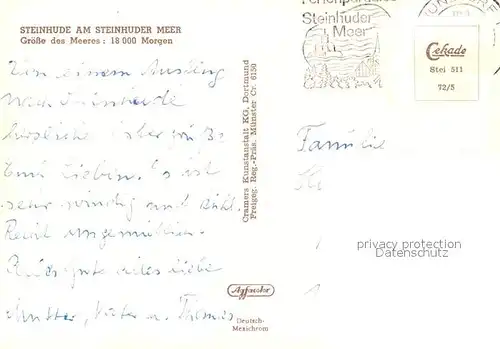 STEINHUDE AM STEINHUDER MEER
Größe des Meeres: 18 000 Morgen
Von einem Ausflug
nach Steinhude
herzliche
Euch Lieben. Es ist
sehr windig und kühl.
Recht ungemütlich.
alles Liebe
Mutter, Vater u. Thomas
Cramers Kunstanstalt KG, Dortmund
Freigeg. Reg.-Präs. Münster Cr. 6150
Steinhuder
Meer
Cekade
Stei 511
72/5
Familie
privacy protection
Datenschutz
Deutsch-
Mexichrom